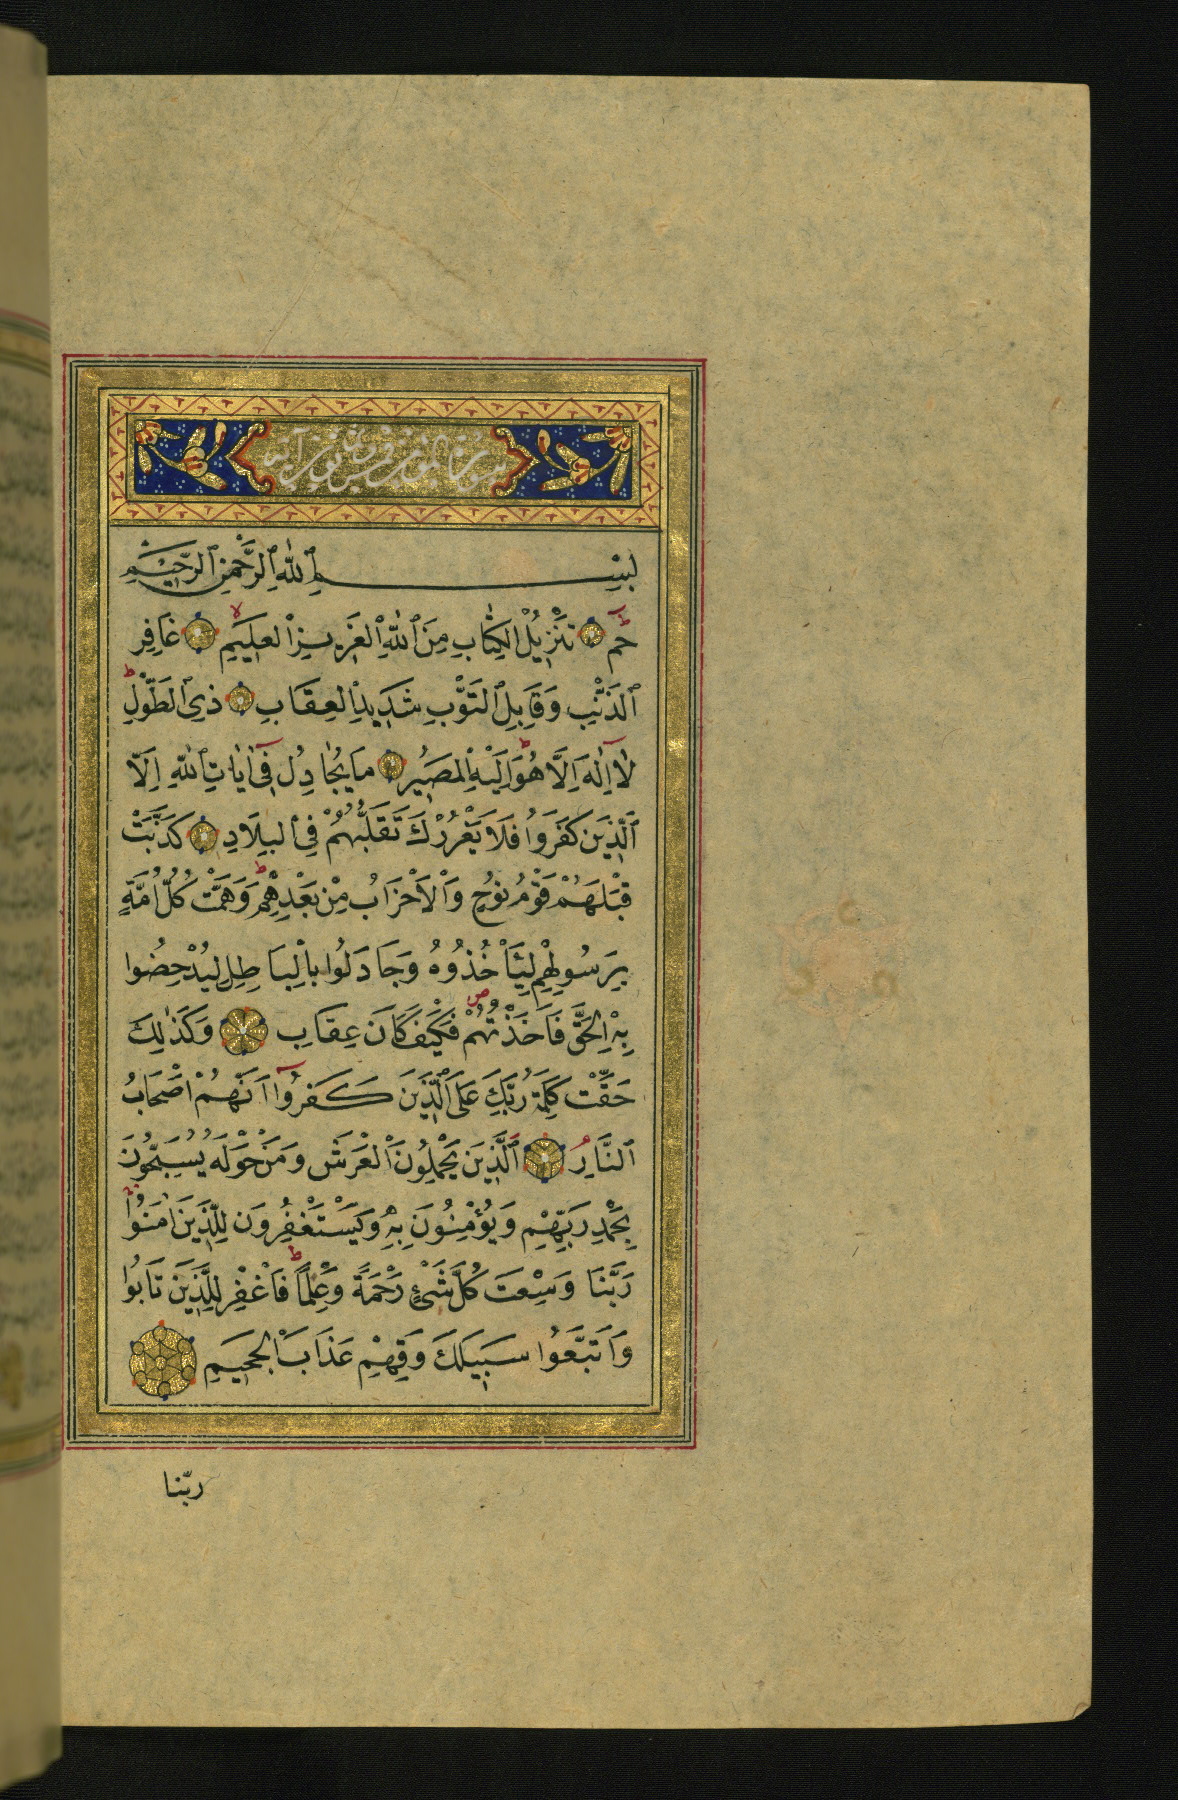 سورة المؤمن
بِسْمِ ٱللّٰهِ ٱلرَّحْمٰنِ ٱلرَّحِيْمِ
حٰمٓ تَنْزِيْلُ الْكِتٰابِ مِنَ ٱللّٰهِ ٱلْعَزِيْزِ ٱلْعَلِيْمِ غَافِرِ
ٱلذَّنْبِ وَقَابِلِ ٱلتَّوْبِ شَدِيْدِ ٱلْعِقَابِ ذِى ٱلطَّوْلِ
لٰآ اِلٰهَ اِلَّا هُوَ اِلَيْهِ ٱلْمَصِيْرُ مَا يُجَادِلُ فِىٓ اٰيَاتِ ٱللّٰهِ اِلَّا
ٱلَّذِيْنَ كَفَرُوا فَلَا يَغْرُرْكَ تَقَلُّبُهُمْ فِى ٱلْبِلَادِ كَذَّبَتْ
قَبْلَهُمْ قَوْمُ نُوْحٍ وَالْاَحْزَابُ مِنْ بَعْدِهِمْ وَهَمَّتْ كُلُّ اُمَّةٍ
بِرَسُولِهِمْ لِيَأْخُذُوهُ وَجَادَلُوا بِالْبَاطِلِ لِيُدْحِضُوا
بِهِ الْحَقَّ فَاَخَذْتُهُمْ فَكَيْفَ كَانَ عِقَابِ وَكَذٰلِكَ
حَقَّتْ كَلِمَةُ رَبِّكَ عَلَى ٱلَّذِيْنَ كَفَرُوٓا اَنَّهُمْ اَصْحَابُ
ٱلنَّارِ ٱلَّذِيْنَ يَحْمِلُونَ الْعَرْشَ وَمَنْ حَوْلَهُ يُسَبِّحُونَ
بِحَمْدِ رَبِّهِمْ وَيُؤْمِنُونَ بِهِ وَيَسْتَغْفِرُونَ لِلَّذِيْنَ اٰمَنُوا
رَبَّنَا وَسِعْتَ كُلَّ شَىْءٍ رَحْمَةً وَعِلْمًا فَاغْفِرْ لِلَّذِيْنَ تَابُوا
وَاتَّبَعُوا سَبِيلَكَ وَقِهِمْ عَذَابَ الْجَحِيمِ
ربّنا